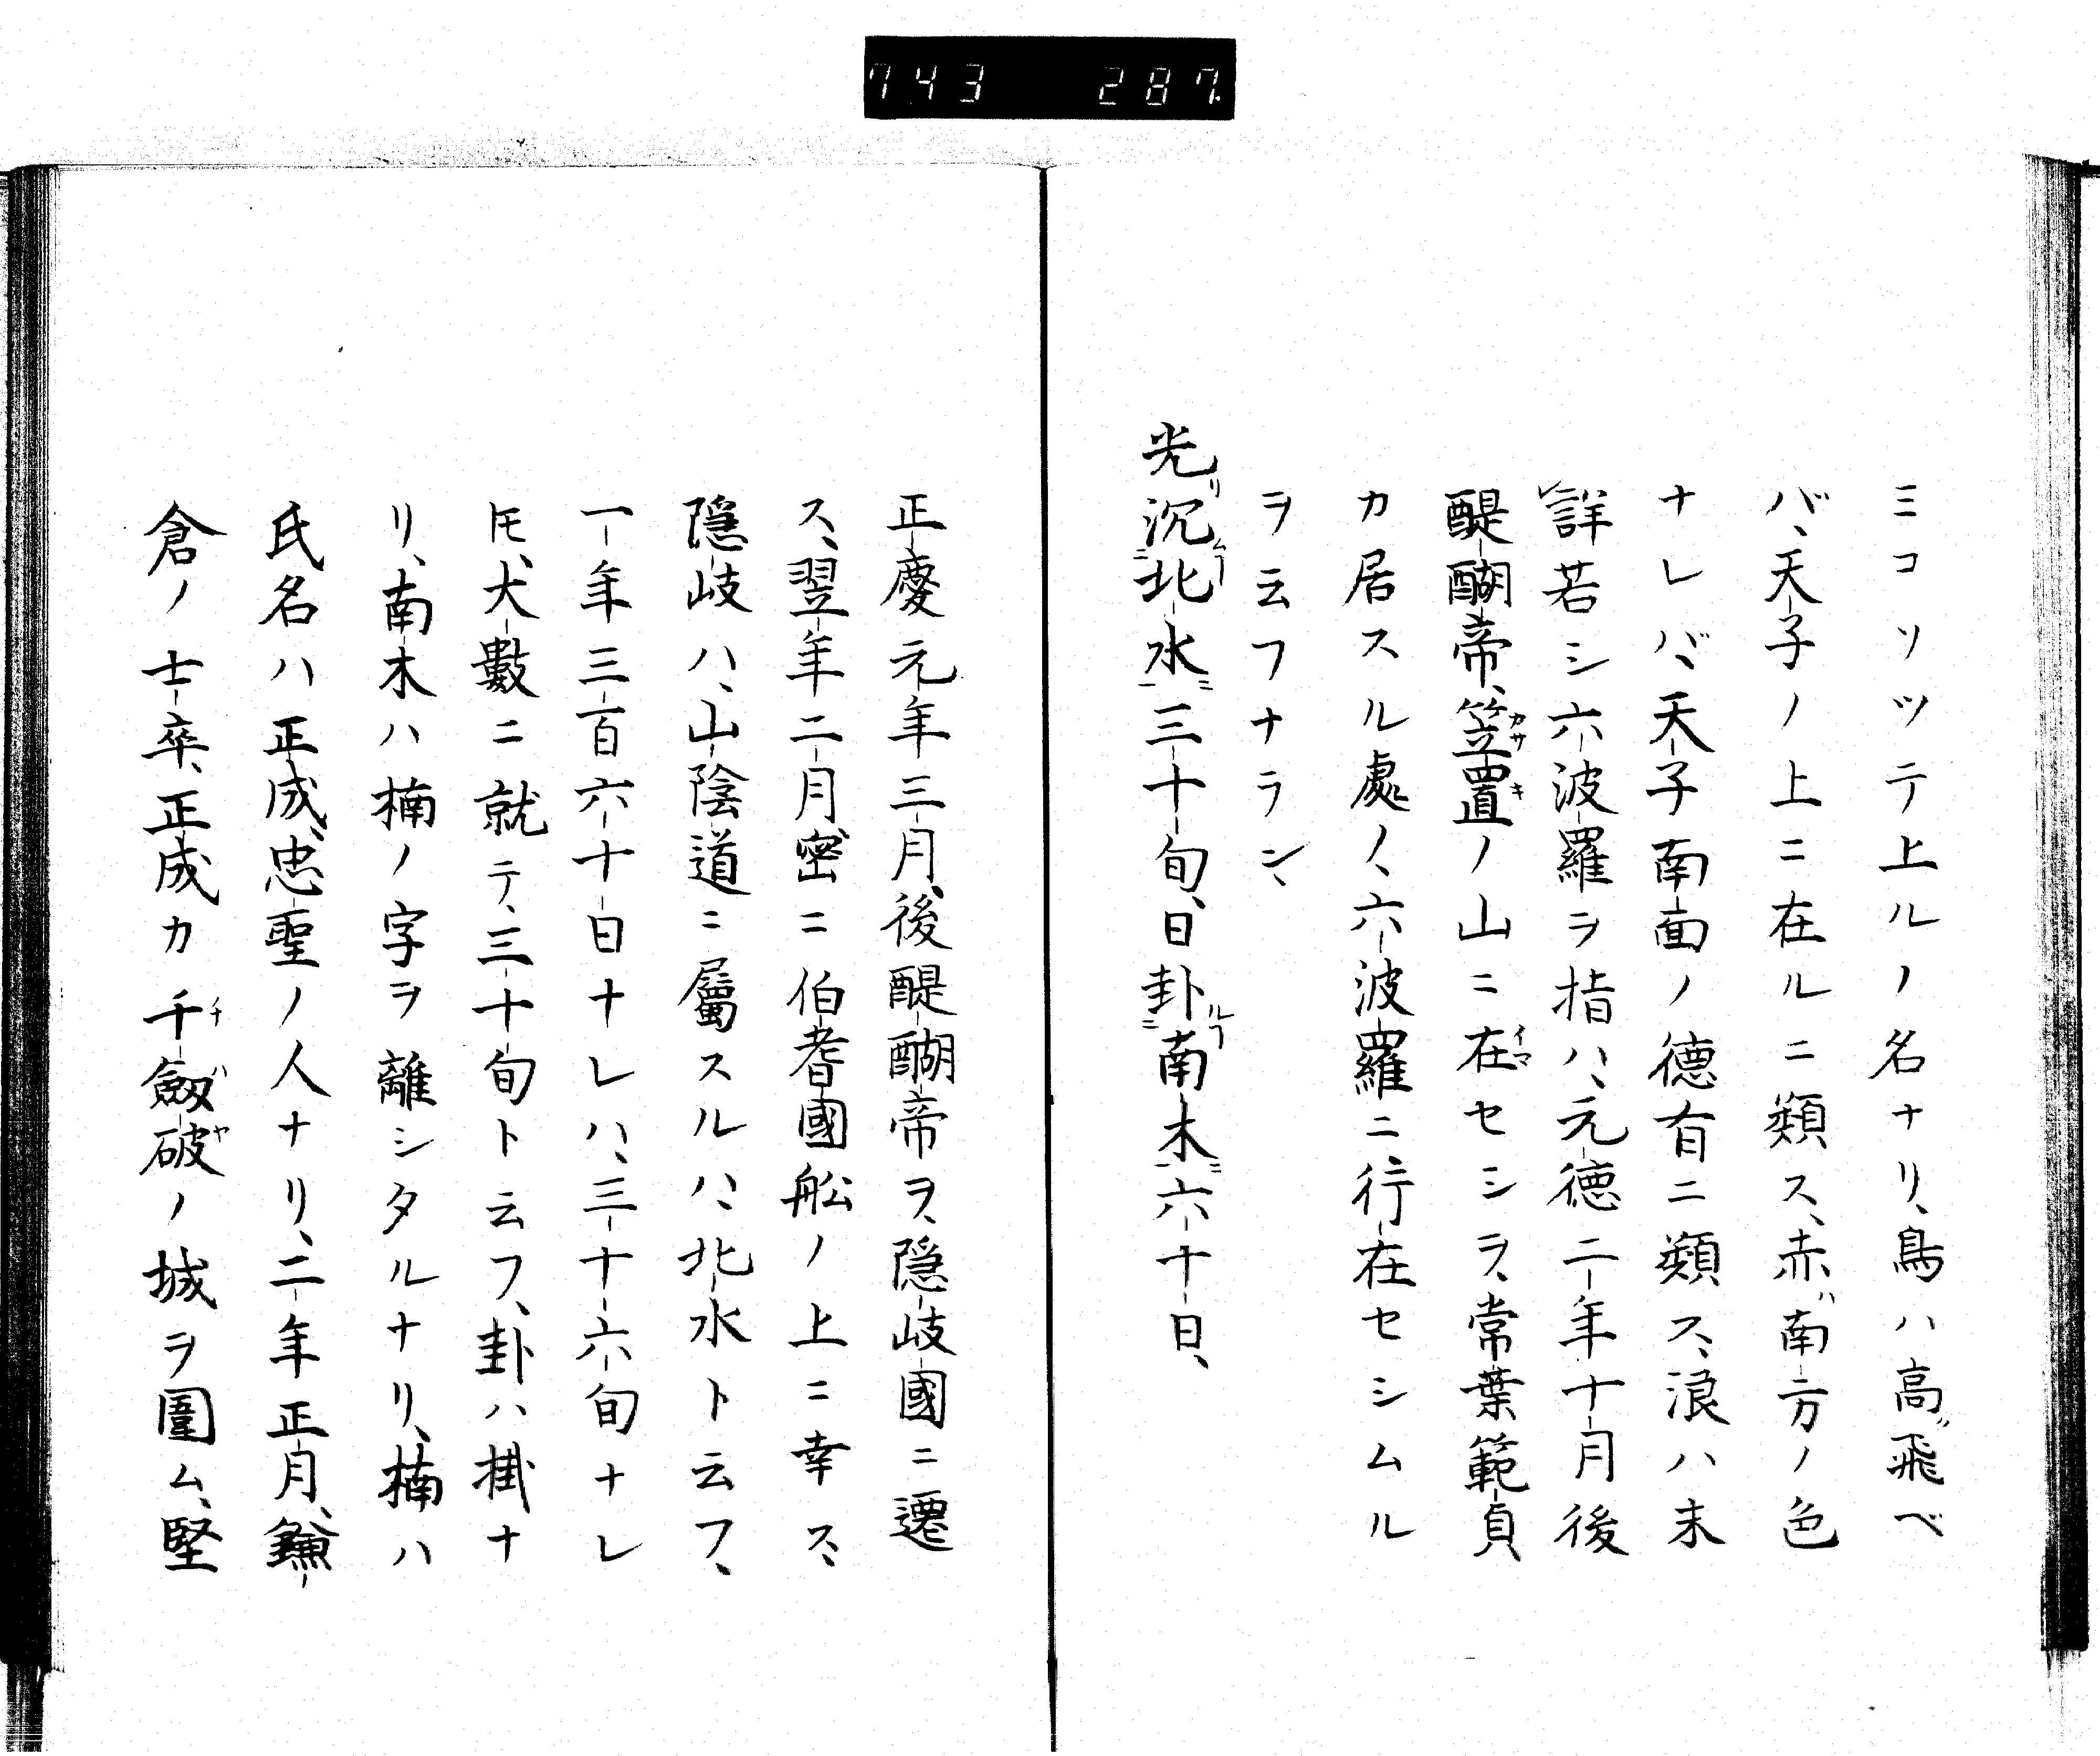 743 287
ミコソツテ上ルノ名ナリ、鳥ハ高ク飛ベ
バ、天子ノ上ニ在ルニ類ス、赤ハ南方ノ色
ナレバ、天子南面ノ德有ニ類ス、浪ハ未
詳若シ六波羅ヲ指ハ、元徳二年十月後
醍醐帝、笠置ノ山ニ在セシヲ、常葉範貞
カ居スル處ノ、六波羅ニ行在セシムル
ヲ云フナラン、
光沉北水三十旬、日卦南木六十日、
正慶元年三月、後醍醐帝ヲ、隠岐國ニ遷
ス、翌年二月密ニ伯耆國舩ノ上ニ幸ス、
隠岐ハ、山陰道ニ屬スルハ、北水ト云フ、
一年三百六十日ナレハ、三十六旬ナレ
𪜈、大數ニ就テ、三十旬ト云フ、卦ハ掛ナ
リ、南木ハ楠ノ字ヲ離シタルナリ、楠ハ
氏名ハ正成、忠聖ノ人ナリ、二年正月、鎌
倉ノ士卒、正成カ千劔破ノ城ヲ圍ム、堅